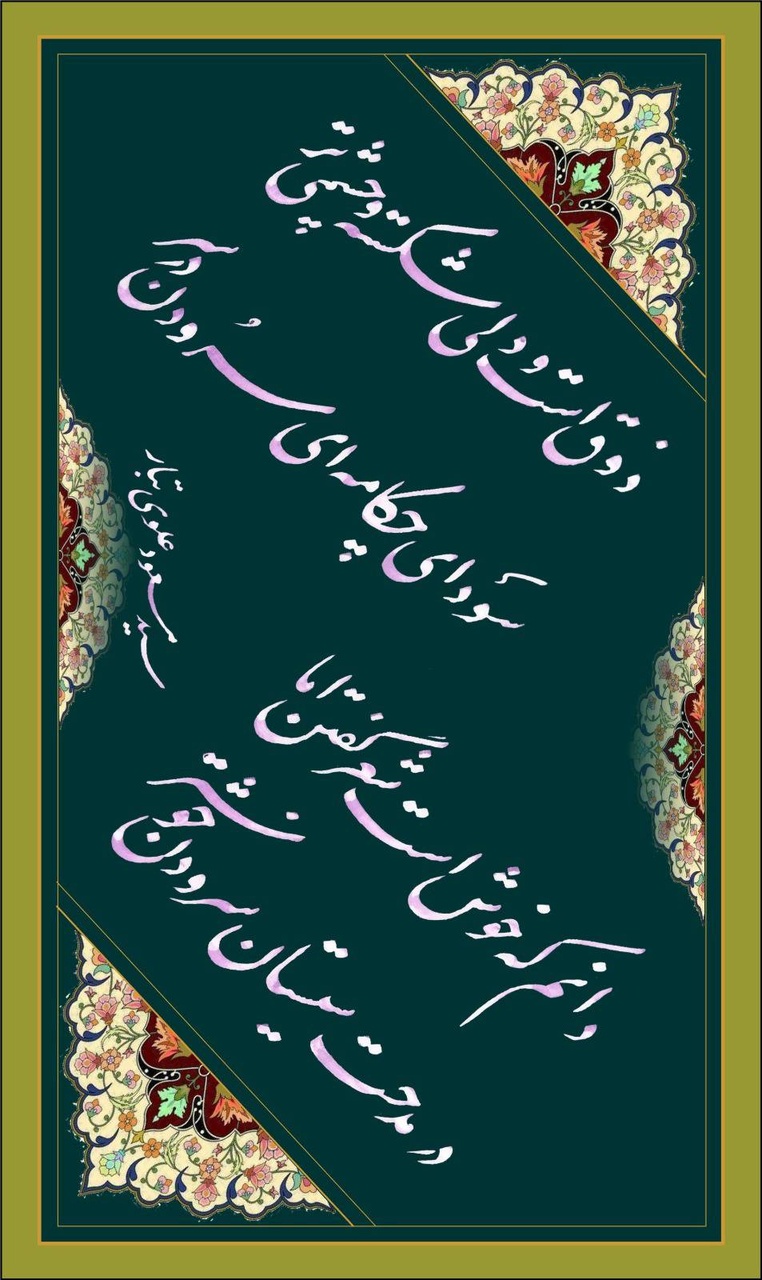 ذوق است و دلی شکسته و چشمی تر
سودای چکامه ای سُرودن در سر
دانم که خوش است شعر گفتن اما
در مدحت سیستان سرودن خوشتر
سید مسعود علوی تبار